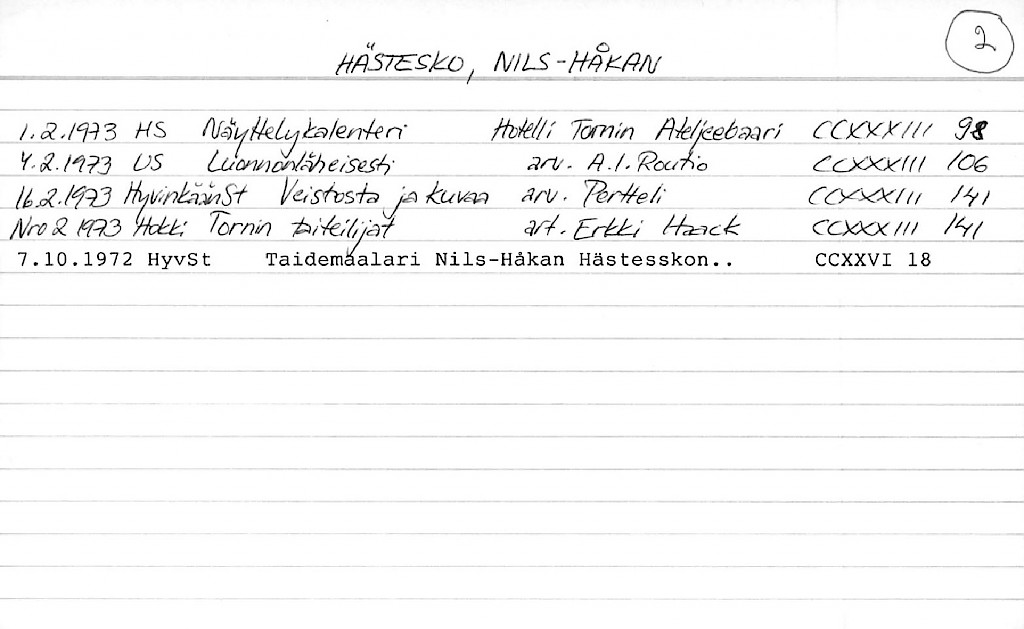 2
HÄSTESKO, NILS-HÅKAN
1.2.1973 HS Näyttelykalenteri Hotelli Tornin Ateljeebaari CCXXXIII 98
4.2.1973 US Luonnonläheisesti arv. A.I. Routio CCXXXIII 106
16.2.1973 HyvinkäänSt Veistosta ja kuvaa arv. Pertteli CCXXXIII 141
Nro 2 1973 Hokki Tornin taiteilijat art. Erkki Haack CCXXXIII 141
7.10.1972 HyvSt Taidemaalari Nils-Håkan Hästesskon.. CCXXVI 18